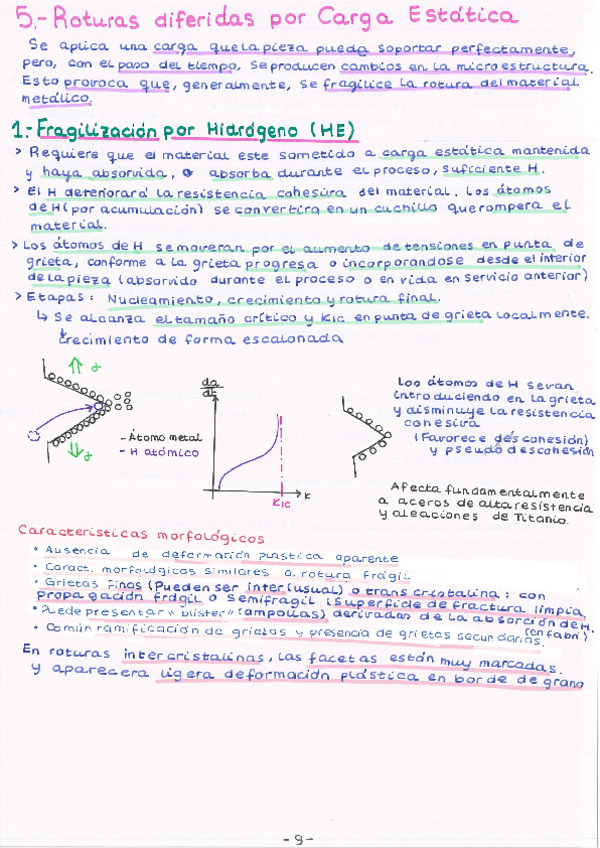 5.- Roturas diferidas por Carga Estática
Se aplica una carga que la pieza puede soportar perfectamente,
pero, con el paso del tiempo, se producen cambios en la microestructura.
Esto provoca que, generalmente, se fragilice la rotura del material
metálico.
1.- Fragilización por Hidrógeno (HE)
> Requiere que el material este sometido a carga estática mantenida
y haya absorvida, o absorba durante el proceso, suficiente H.
> El H deteriorará la resistencia cohesiva del material. Los átomos
de H (por acumulación) se convertira en un cuchillo que rompera el
material.
> Los átomos de H se moveran por el aumento de tensiones en punta de
grieta, conforme a la grieta progresa o incorporandose desde el interior
de la pieza (absorvido durante el proceso o en vida en servicio anterior)
> Etapas: Nucleamiento, crecimiento y rotura final.
↳ Se alcanza el tamaño crítico y KIC en punta de grieta localmente.
Crecimiento de forma escalonada
- Átomo metal
- H atómico
da
dt
KIC
K
Los átomos de H se van
introduciendo en la grieta
y disminuye la resistencia
cohesiva
(Favorece descohesión)
y pseudo descohesión
Afecta fundamentalmente
a aceros de alta resistencia
y aleaciones de Titanio.
Caracteristicas morfológicos
• Ausencia de deformación plástica aparente
• Caract. morfológicas similares a rotura frágil
• Grietas Finas (Pueden ser inter (usual) o trans cristalina: con
propagación frágil o semifragil (superficie de fractura limpia,
• Puede presentar "blister" (ampollas) derivadas de la absorción de H.
(en fabri)
• Común ramificación de grietas y presencia de grietas secundarias.
En roturas intercristalinas, las facetas están muy marcadas.
y aparecera ligera deformación plástica en borde de grano
- 9 -